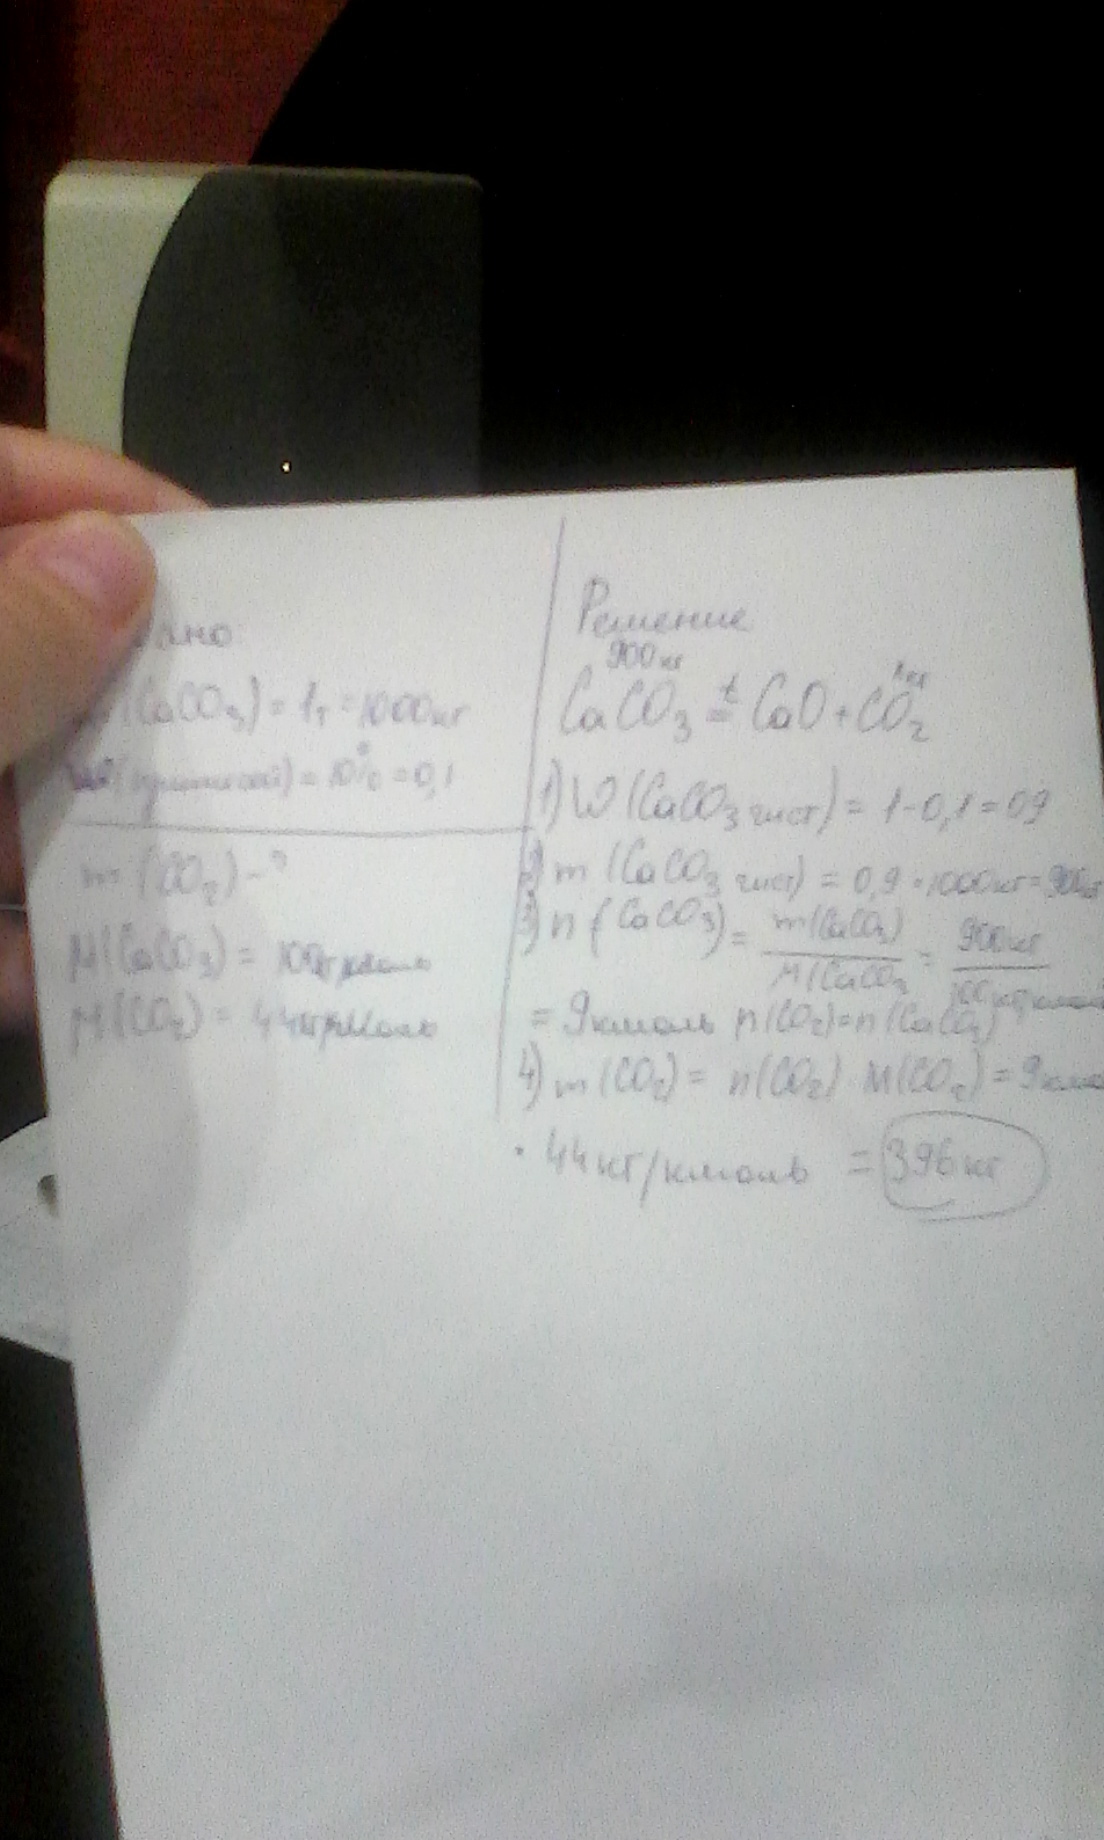 Дано
(CaCO₃) = 1т = 1000кг
(примесей) = 10% = 0,1
m (CO₂) - ?
M(CaCO₃) = 100кг/кмоль
M(CO₂) = 44кг/кмоль
Решение
900кг
CaCO₃ =ᵗ CaO + CO₂
1) W (CaCO₃ чист) = 1-0,1 = 09
2) m (CaCO₃ чист) = 0,9 · 1000кг = 900кг
3) n (CaCO₃) = m(CaCO₃) / M(CaCO₃ = 900кг / 100кг/кмоль
= 9кмоль n(CO₂) = n(CaCO₃)
4) m (CO₂) = n(CO₂) M(CO₂) = 9кмо
· 44кг/кмоль = 396кг